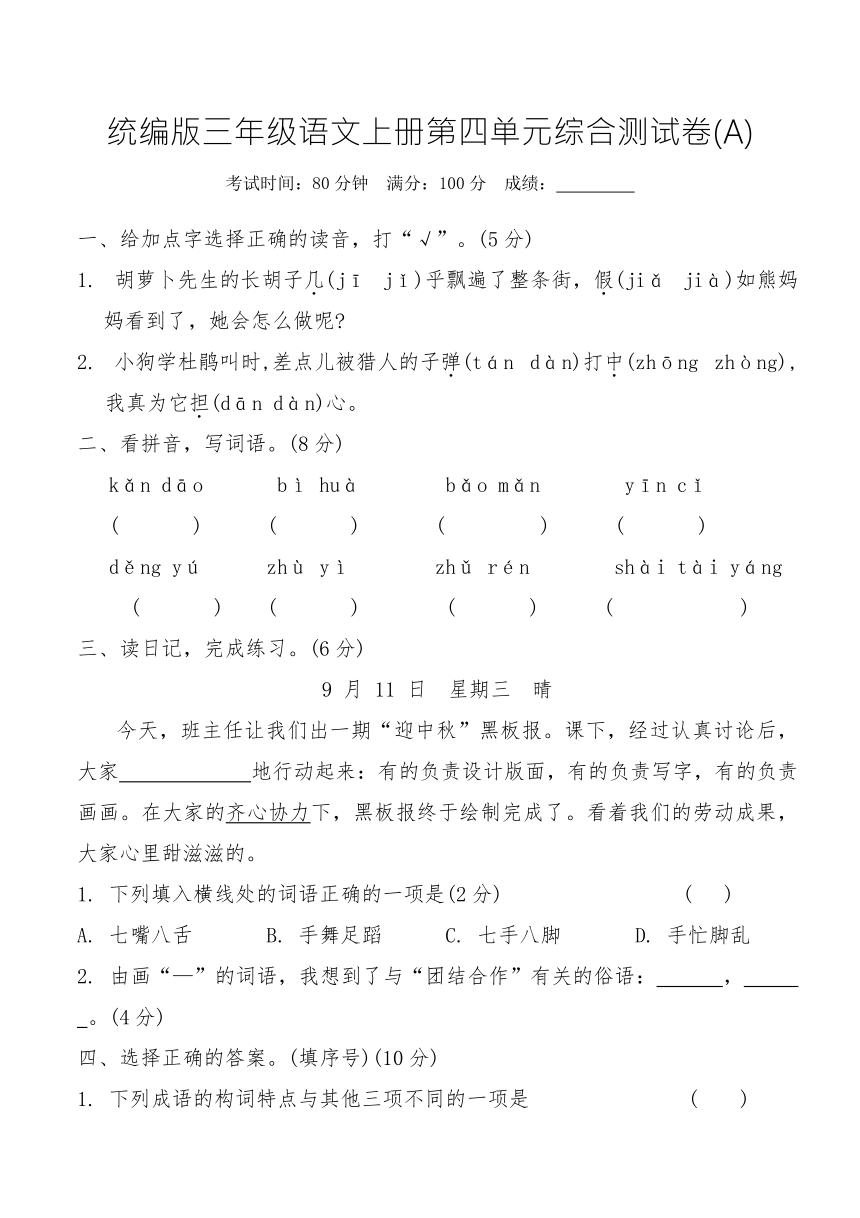 统编版三年级语文上册第四单元综合测试卷(A)
考试时间:80分钟 满分:100分 成绩:________
一、给加点字选择正确的读音,打“√”。(5分)
1. 胡萝卜先生的长胡子几(jī jǐ)乎飘遍了整条街,假(jiǎ jià)如熊妈
妈看到了,她会怎么做呢?
2. 小狗学杜鹃叫时,差点儿被猎人的子弹(tán dàn)打中(zhōng zhòng),
我真为它担(dān dàn)心。
二、看拼音,写词语。(8分)
kǎn dāo bì huà bǎo mǎn yīn cǐ
( ) ( ) ( ) ( )
děng yú zhù yì zhǔ rén shài tài yáng
( ) ( ) ( ) ( )
三、读日记,完成练习。(6分)
9 月 11 日 星期三 晴
今天,班主任让我们出一期“迎中秋”黑板报。课下,经过认真讨论后,
大家____________地行动起来:有的负责设计版面,有的负责写字,有的负责
画画。在大家的齐心协力下,黑板报终于绘制完成了。看着我们的劳动成果,
大家心里甜滋滋的。
1. 下列填入横线处的词语正确的一项是(2分) ( )
A. 七嘴八舌 B. 手舞足蹈 C. 七手八脚 D. 手忙脚乱
2. 由画“—”的词语,我想到了与“团结合作”有关的俗语:______,_____
_。(4分)
四、选择正确的答案。(填序号)(10分)
1. 下列成语的构词特点与其他三项不同的一项是 ( )